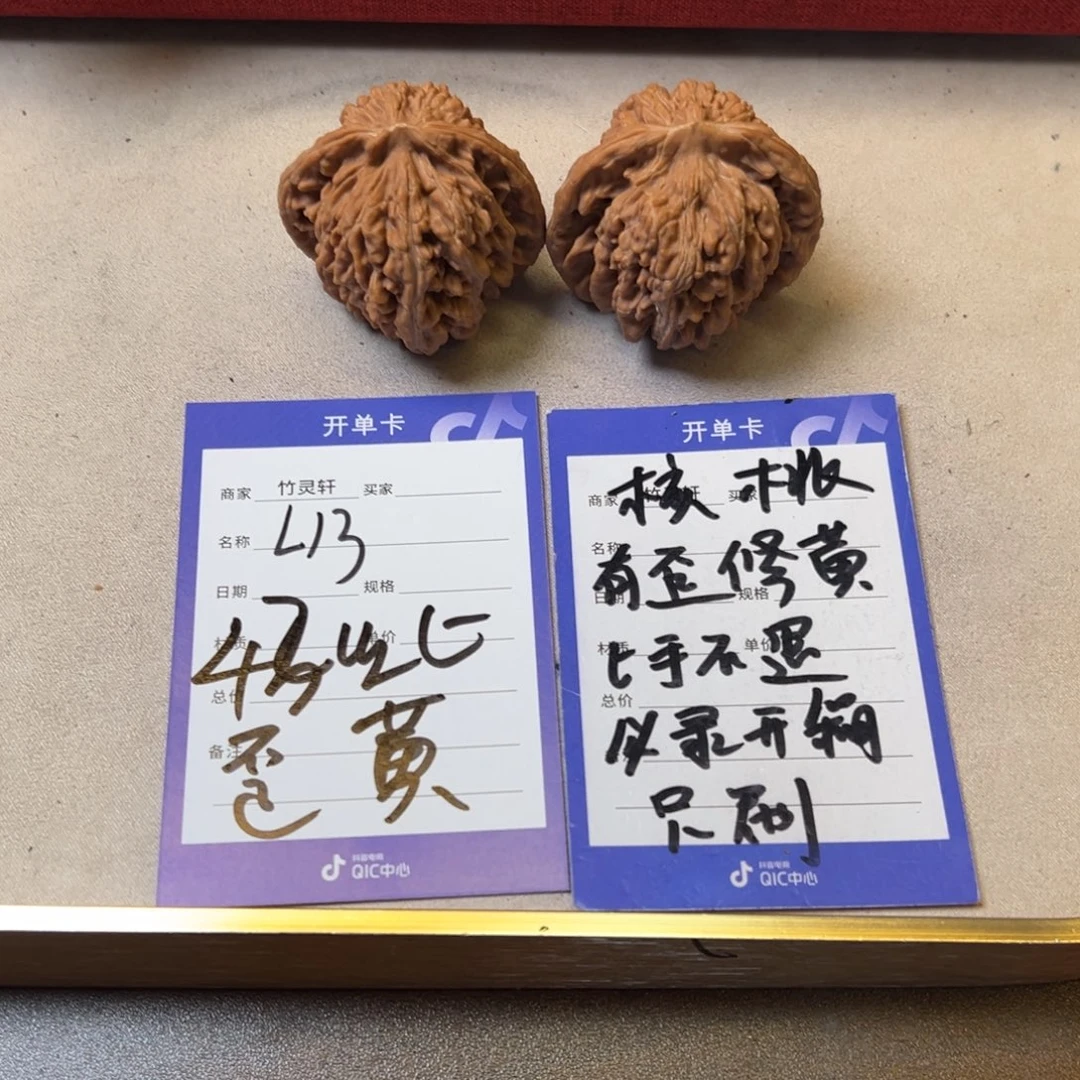 开单卡
商家 竹灵轩 买家
名称 413
日期 规格
材质 单价
总价
备注 歪 黄
抖音电商
QIC中心
开单卡
商家 买家
核桃
名称
有歪修黄
日期 规格
材质 单价
匕手不退
总价
必录开箱
只刷
抖音电商
QIC中心